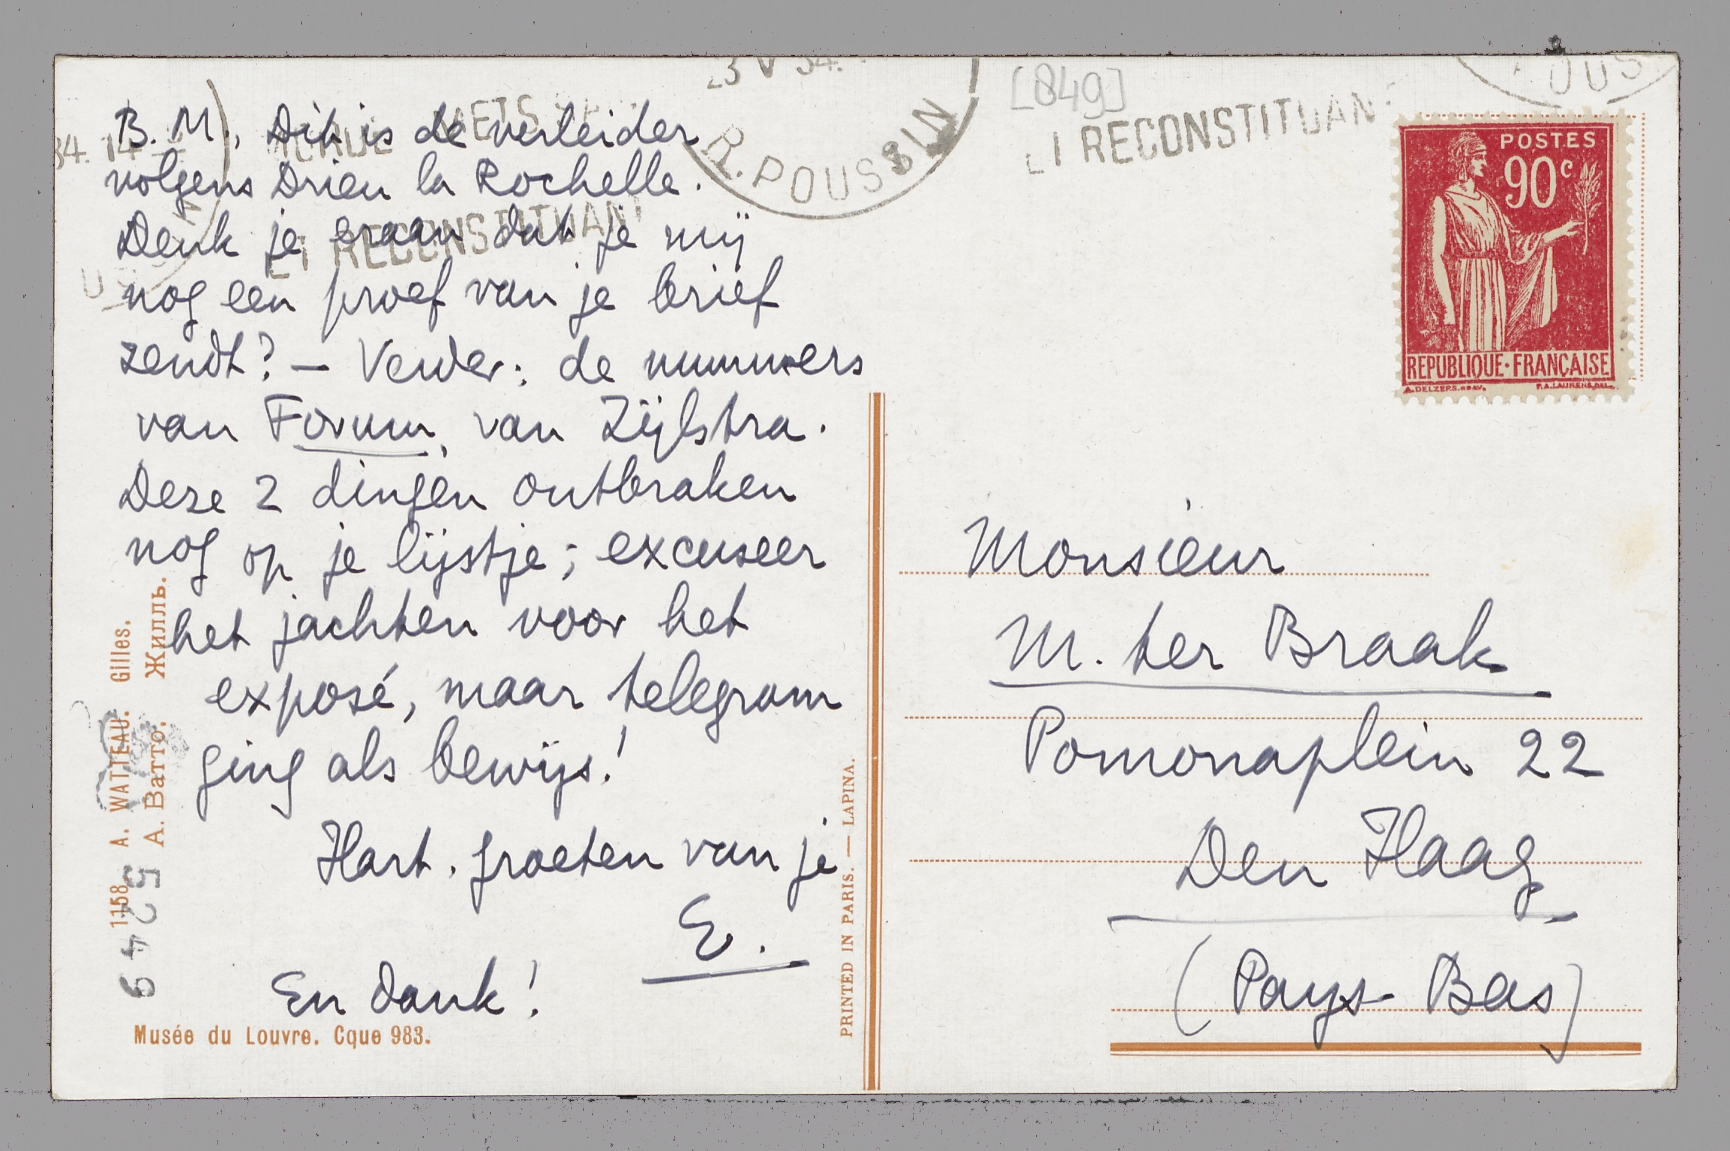 B.M., Dit is de verleider
volgens Drieu la Rochelle.
Denk je eraan dat je mij
nog een proef van je brief
zendt? — Verder: de nummers
van Forum, van Zijlstra.
Deze 2 dingen ontbraken
nog op je lijstje; excuseer
het jachten voor het
exposé, maar telegram
ging als bewijs!
Hart. groeten van je
E.
En dank!
Musée du Louvre. Cque 983.
1158. A. WATTEAU. Gilles.
А. Ватто. Жилль.
5249
PRINTED IN PARIS. — LAPINA.
[849]
R. POUSSIN
ET RECONSTITUANT
ET RECONSTITUANT
POSTES
90c
REPUBLIQUE·FRANÇAISE
Monsieur
M. ter Braak
Pomonaplein 22
Den Haag
(Pays-Bas)